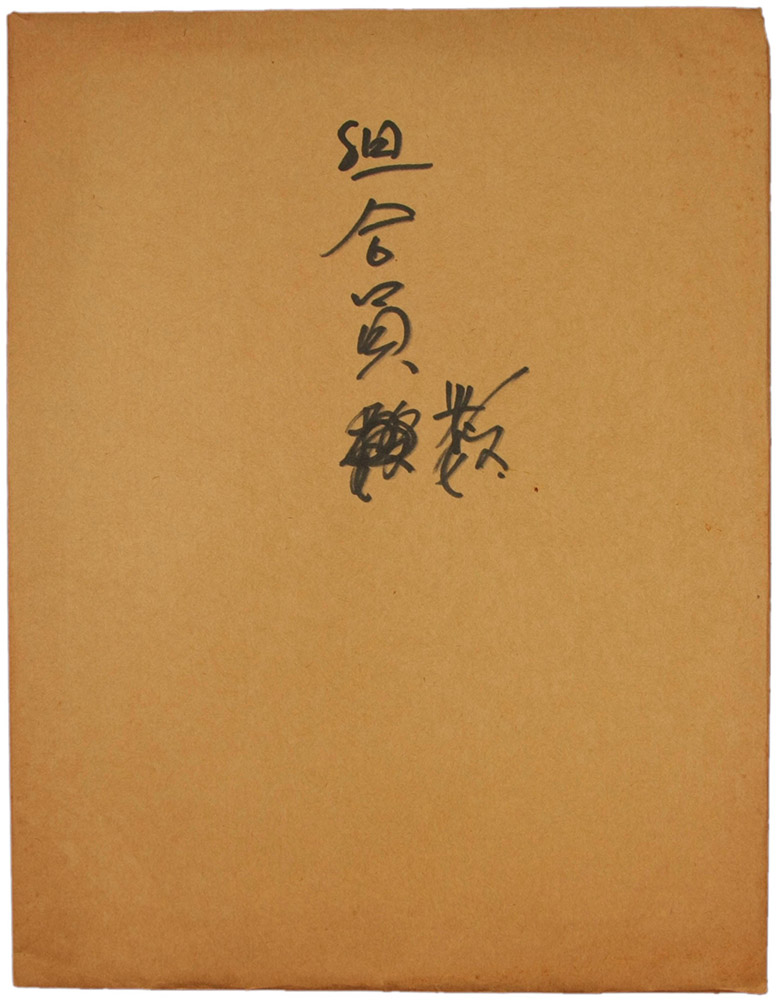 組合員数